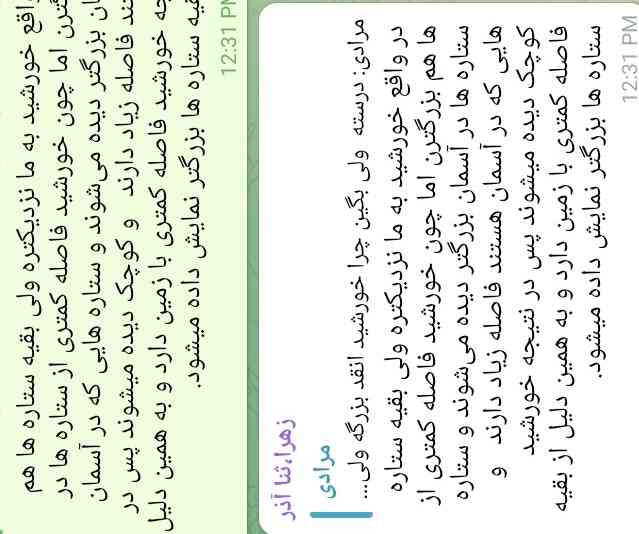 واقع خورشید به ما نزدیکتره ولی بقیه ستاره ها هم
اما چون خورشید فاصله کمتری از ستاره ها در
بزرگتر دیده می‌شوند و ستاره هایی که در آسمان
فاصله زیاد دارند و کوچک دیده میشوند پس در
خورشید فاصله کمتری با زمین دارد و به همین دلیل
ستاره ها بزرگتر نمایش داده میشود.
12:31 PM
زهرا،ثنا آذر
مرادی
مرادی: درسته ولی بگین چرا خورشید انقد بزرگه ولی...
در واقع خورشید به ما نزدیکتره ولی بقیه ستاره
ها هم بزرگترن اما چون خورشید فاصله کمتری از
ستاره ها در آسمان بزرگتر دیده می‌شوند و ستاره
هایی که در آسمان هستند فاصله زیاد دارند و
کوچک دیده میشوند پس در نتیجه خورشید
فاصله کمتری با زمین دارد و به همین دلیل از بقیه
ستاره ها بزرگتر نمایش داده میشود.
12:31 PM